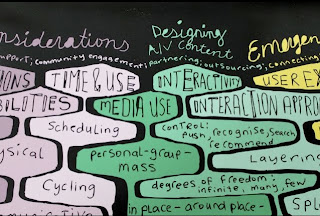 nsiderations
Designing
A/V Content
Emergen
support; community engagement; partnering; outsourcing; connecting
IONS
TIME & USE
INTERACTIVITY
USER EX
BILITIES
MEDIA USE
INTERACTION APPRO
Scheduling
control:
push, recognise, search
recommend
hysical
personal-group-
mass
Layering
Cycling
degrees of freedom:
infinite, many, few
in place - around place -
SPL